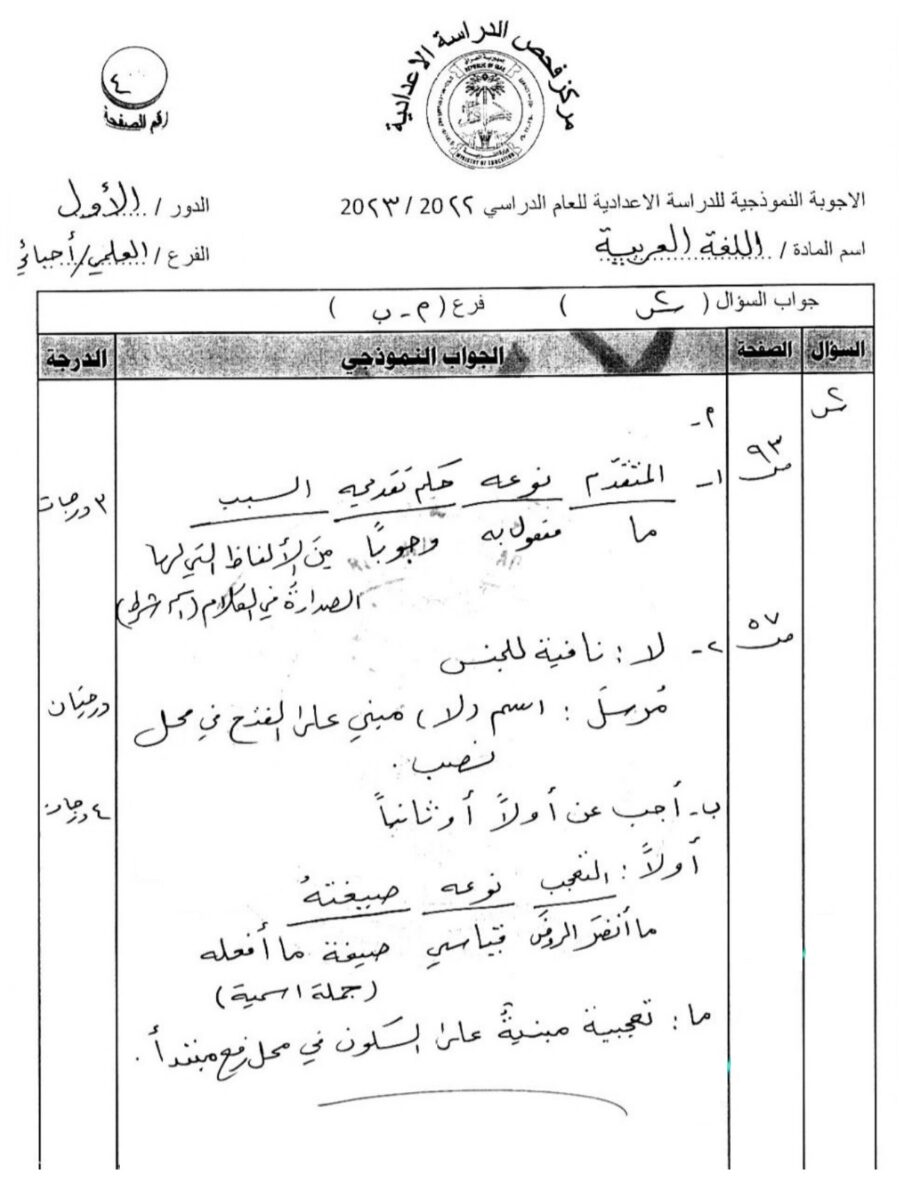 مركز فحص الدراسة الاعدادية
جمهورية العراق
REPUBLIC OF IRAQ
وزارة التربية
MINISTRY OF EDUCATION
٤
رقم الصفحة
الاجوبة النموذجية للدراسة الاعدادية للعام الدراسي ٢٠٢٢ / ٢٠٢٣
الدور / الأول
اسم المادة / اللغة العربية
الفرع / العلمي/أحيائي
جواب السؤال ( س٢ ) فرع ( م - ب )
السؤال الصفحة الجواب النموذجي الدرجة
س٢
م -
ص ٩٣
١- المتقدم نوعه حكم تقدمه السبب
٣ درجات
ما مفعول به وجوباً من الألفاظ التي لها
الصدارة في الكلام (اسم شرط)
ص ٥٧
٢- لا : نافية للجنس
درجتان
مُرسلَ : اسم (لا) مبني على الفتح في محل
نصب .
٤ درجات
ب- أجب عن أولاً أو ثانياً
أولاً : التعجب نوعه صيغتهُ
ما أنضرَ الروضَ قياسي صيغة ما أفعله
(جملة اسمية)
ما : تعجبية مبنيةٌ على السكون في محل رفع مبتدأ .